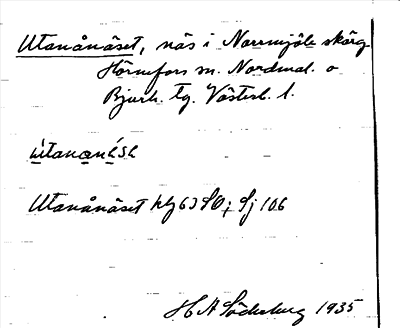 Utanånäset, näs i Norrmjöle skärg.
Hörnefors sn. Nordmal. o
Bjurh. tg. Västerb. l.
Utanånäset hbl 63 SO; Sj 106
H A Söderberg 1935